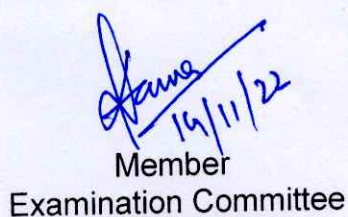 19/11/22
Member
Examination Committee